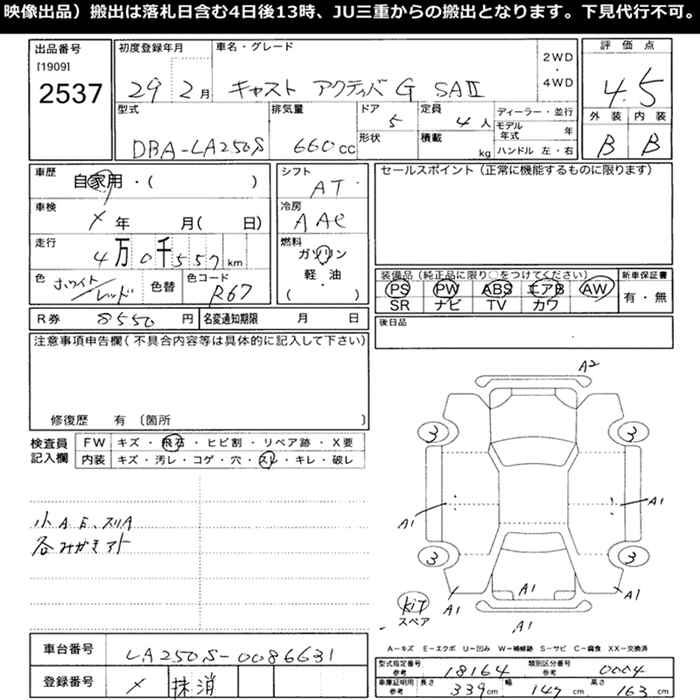 映像出品）搬出は落札日含む4日後13時、JU三重からの搬出となります。下見代行不可。
出品番号 [1909] 2537
初度登録年月 29 2月
車名・グレード キャスト アクティバ G SAⅡ
2WD・4WD
評価点 4.5
外装 B 内装 B
型式 DBA-LA250S
排気量 660cc
ドア 5 形状
定員 4人 積載 kg
ディーラー・並行
モデル年式 年
ハンドル 左・右
車歴 自家用・( )
車検 × 年 月( 日)
走行 4万0千557km
色 ホワイト/レッド 色替
色コード R67
シフト AT
冷房 AAC
燃料 ガソリン 軽・油 ( ・ )
セールスポイント（正常に機能するものに限ります）
装備品（純正品に限り○をつけてください）
PS PW ABS エアB AW
SR ナビ TV カワ
新車保証書 有・無
後日品
R券 8550円
名変通知期限 月 日
注意事項申告欄(不具合内容等は具体的に記入して下さい)
修復歴 有〔箇所 〕
検査員記入欄
FW キズ・飛石・ヒビ割・リペア跡・X要
内装 キズ・汚レ・コゲ・穴・スレ・キレ・破レ
小A.E.スリA
各みがきアト
A2
3 3
A1 A1
3 3
A1 A1 A1
A1
kiT
スペア
A－キズ E－エクボ U－凹み W－補修跡 S－サビ C－腐食 XX－交換済
車台番号 LA250S-0086631
登録番号 × 抹消
型式指定番号 参考 18164
類別区分番号 参考 0004
車庫証明用 参考 長さ 339cm 幅 147cm 高さ 163cm